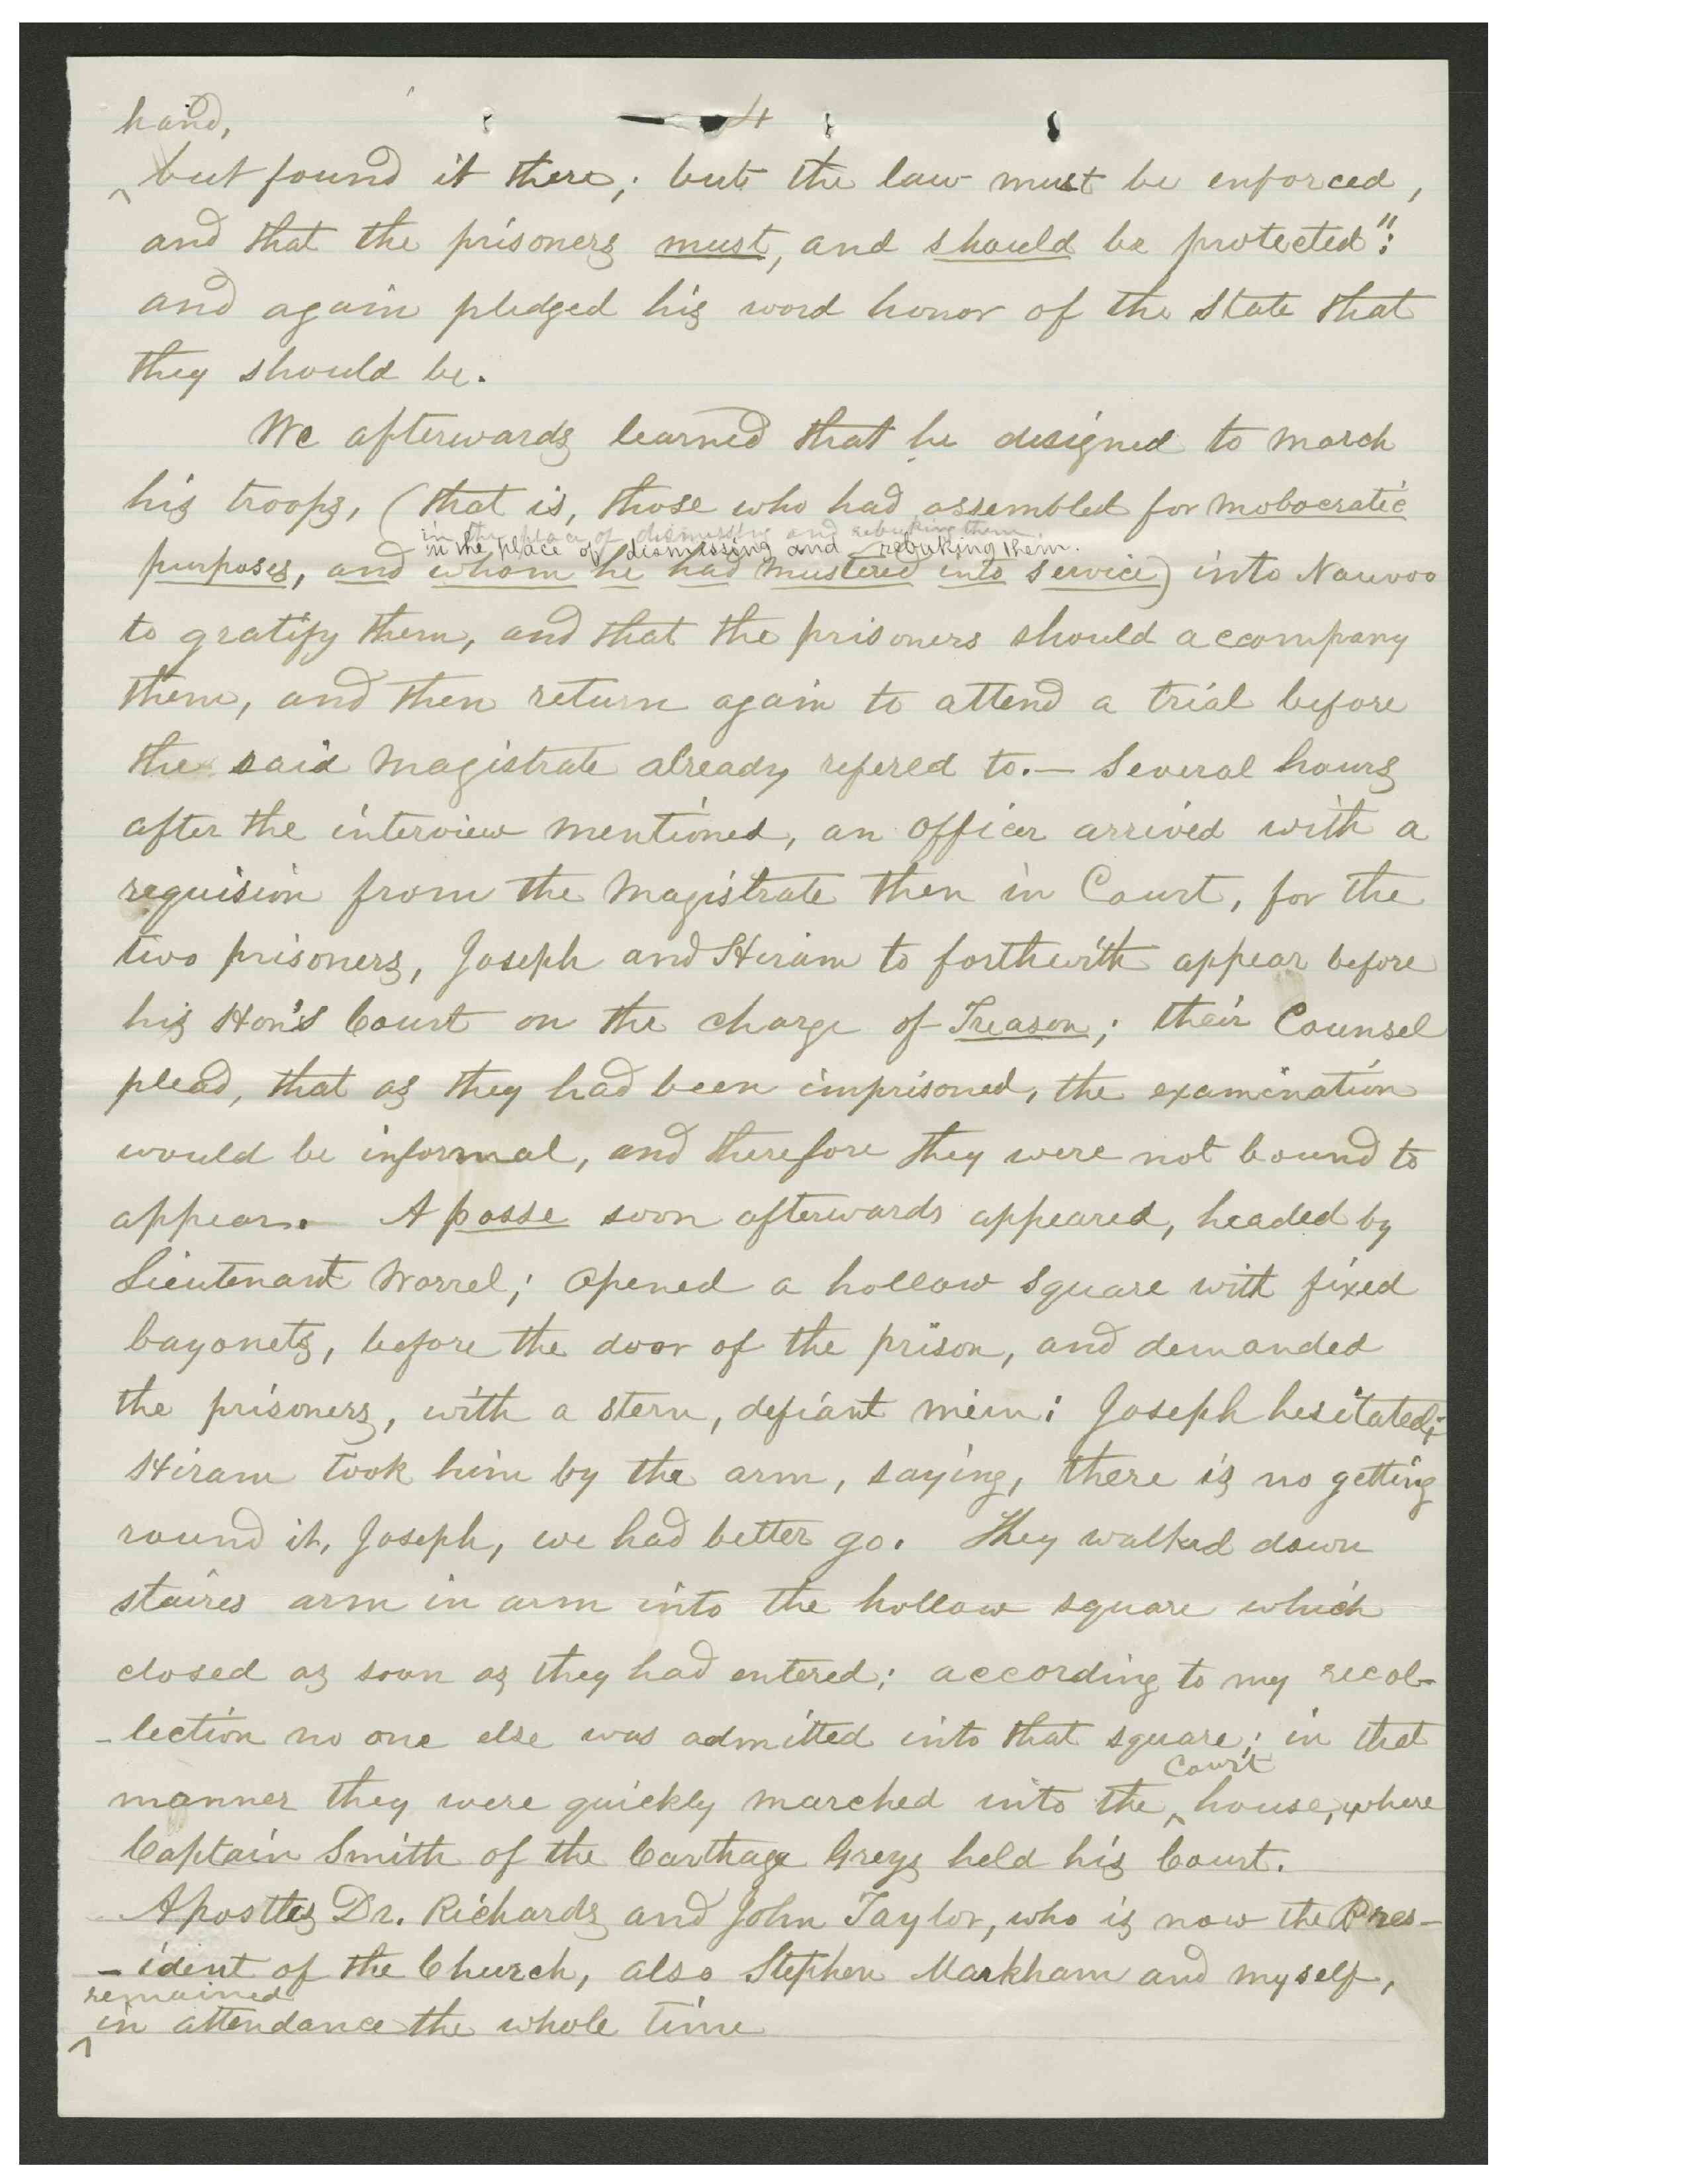 4
hand,
^but found it there; but the law must be enforced,
and that the prisoners must, and should be protected":
and again pledged his word honor of the State that
they should be.
We afterwards learned that he designed to march
his troops, (that is, those who had assembled for mobocratic
in the place of dismissing and rebuking them.
in the place of dismissing and rebuking them.
purposes, and whom he had mustered into service) into Nauvoo
to gratify them, and that the prisoners should accompany
them, and then return again to attend a trial before
the said Magistrate already refered to.— Several hours
after the interview mentioned, an officer arrived with a
requision from the Magistrate then in Court, for the
two prisoners, Joseph and Hiram to forthwith appear before
his Hon's Court on the charge of Treason; their Counsel
plead, that as they had been imprisoned, the examination
would be informal, and therefore they were not bound to
appear. A posse soon afterwards appeared, headed by
Lieutenant Worrel; opened a hollow square with fixed
bayonets, before the door of the prison, and demanded
the prisoners, with a stern, defiant mein; Joseph hesitated;
Hiram took him by the arm, saying, there is no getting
round it, Joseph, we had better go. They walked down
staires arm in arm into the hollow square which
closed as soon as they had entered; according to my recol-
-lection no one else was admitted into that square; in that
Court
manner they were quickly marched into the ^ house, where
Captain Smith of the Carthage Greys held his Court.
Apostles Dr. Richards and John Taylor, who is now the Pres-
-ident of the Church, also Stephen Markham and myself,
remained
^in attendance the whole time